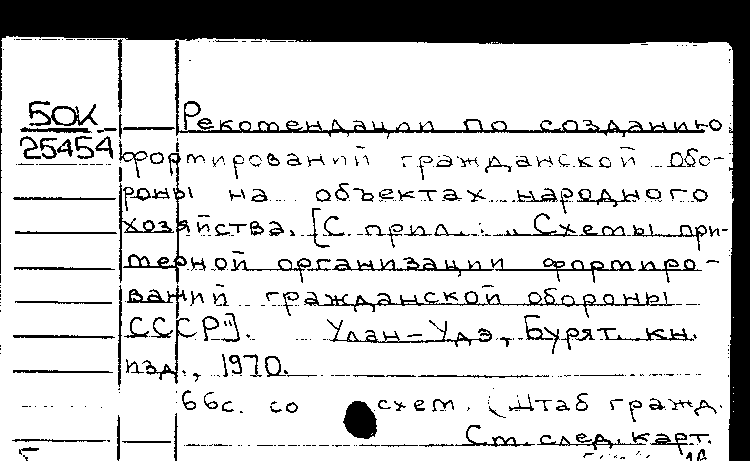 БОК
25454
Рекомендации по созданию
формирований гражданской обо-
роны на объектах народного
хозяйства. [С прил.: „Схемы при-
мерной организации формиро-
ваний гражданской обороны
СССР"]. Улан-Удэ, Бурят. кн.
изд., 1970.
66с. со схем. (Штаб гражд.
См. след. карт.